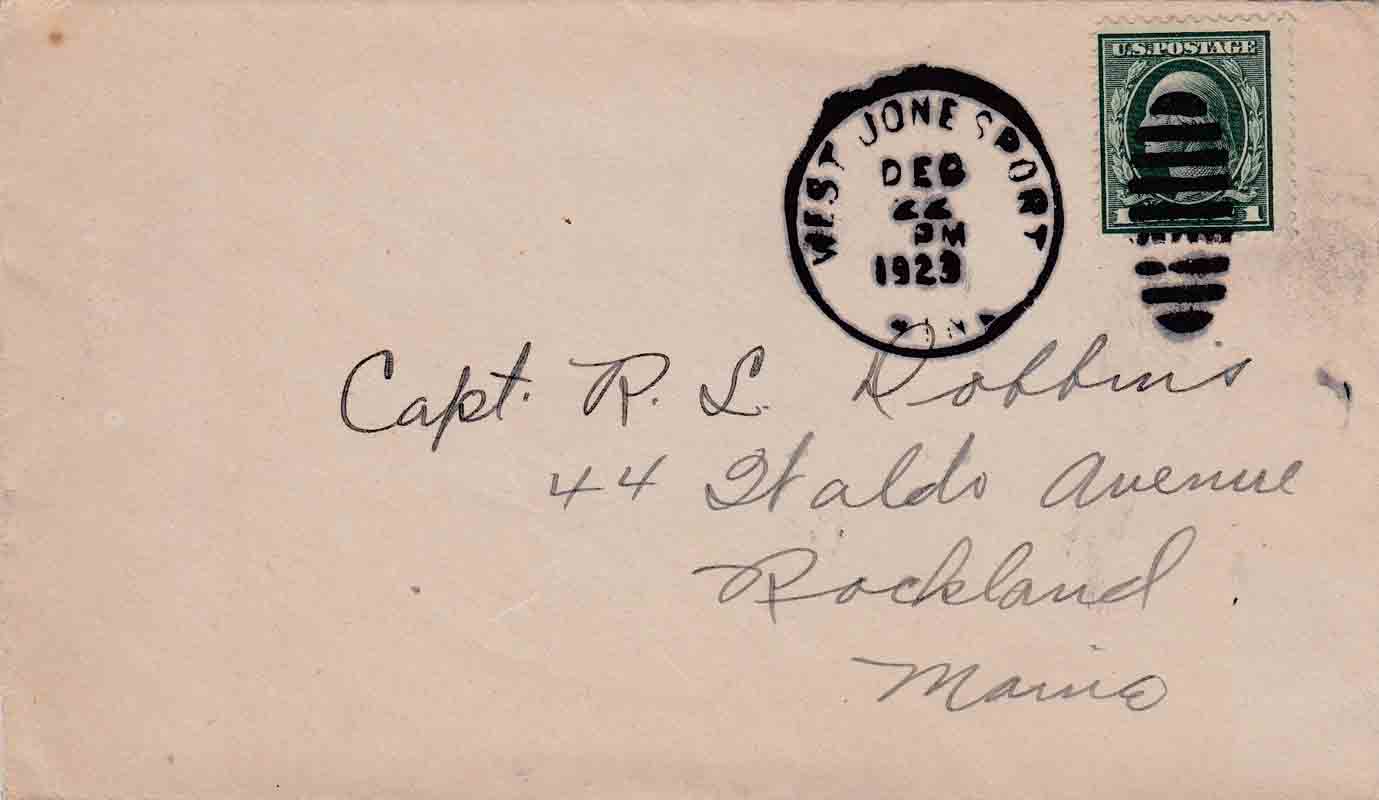 U.S. POSTAGE
1 1
WEST JONESPORT
DEC
22
PM
1923
Capt. R. L. Robbins
44 Waldo Avenue
Rockland.
Maine